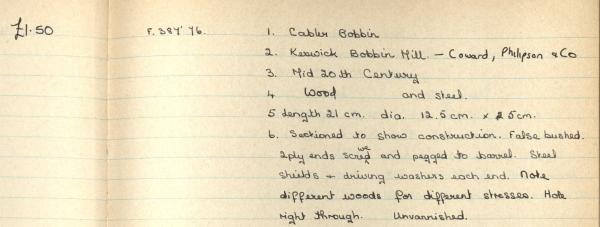 £1.50 F. 384' 76. 1. Cabler Bobbin
2. Keswick Bobbin Mill. — Coward, Philipson & Co
3. Mid 20th Century
4 Wood and steel.
5 Length 21 cm. dia. 12.5 cm. x 5 cm.
6. Sectioned to show construction. False bushed.
2 ply ends screwed and pegged to barrel. Steel
shields + driving washers each end. Note
different woods for different stresses. Hole
right through. Unvarnished.